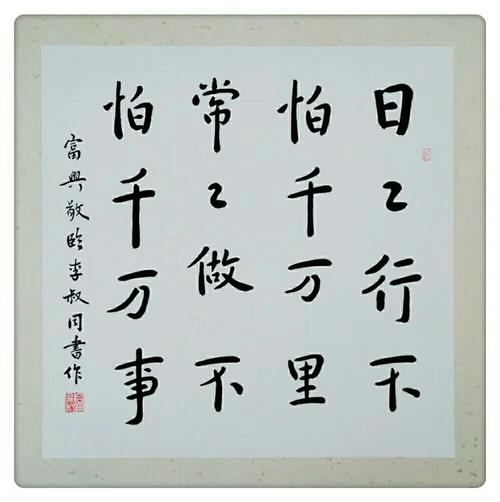 日〻行不
怕千万里
常〻做不
怕千万事
富興敬臨李叔同書作